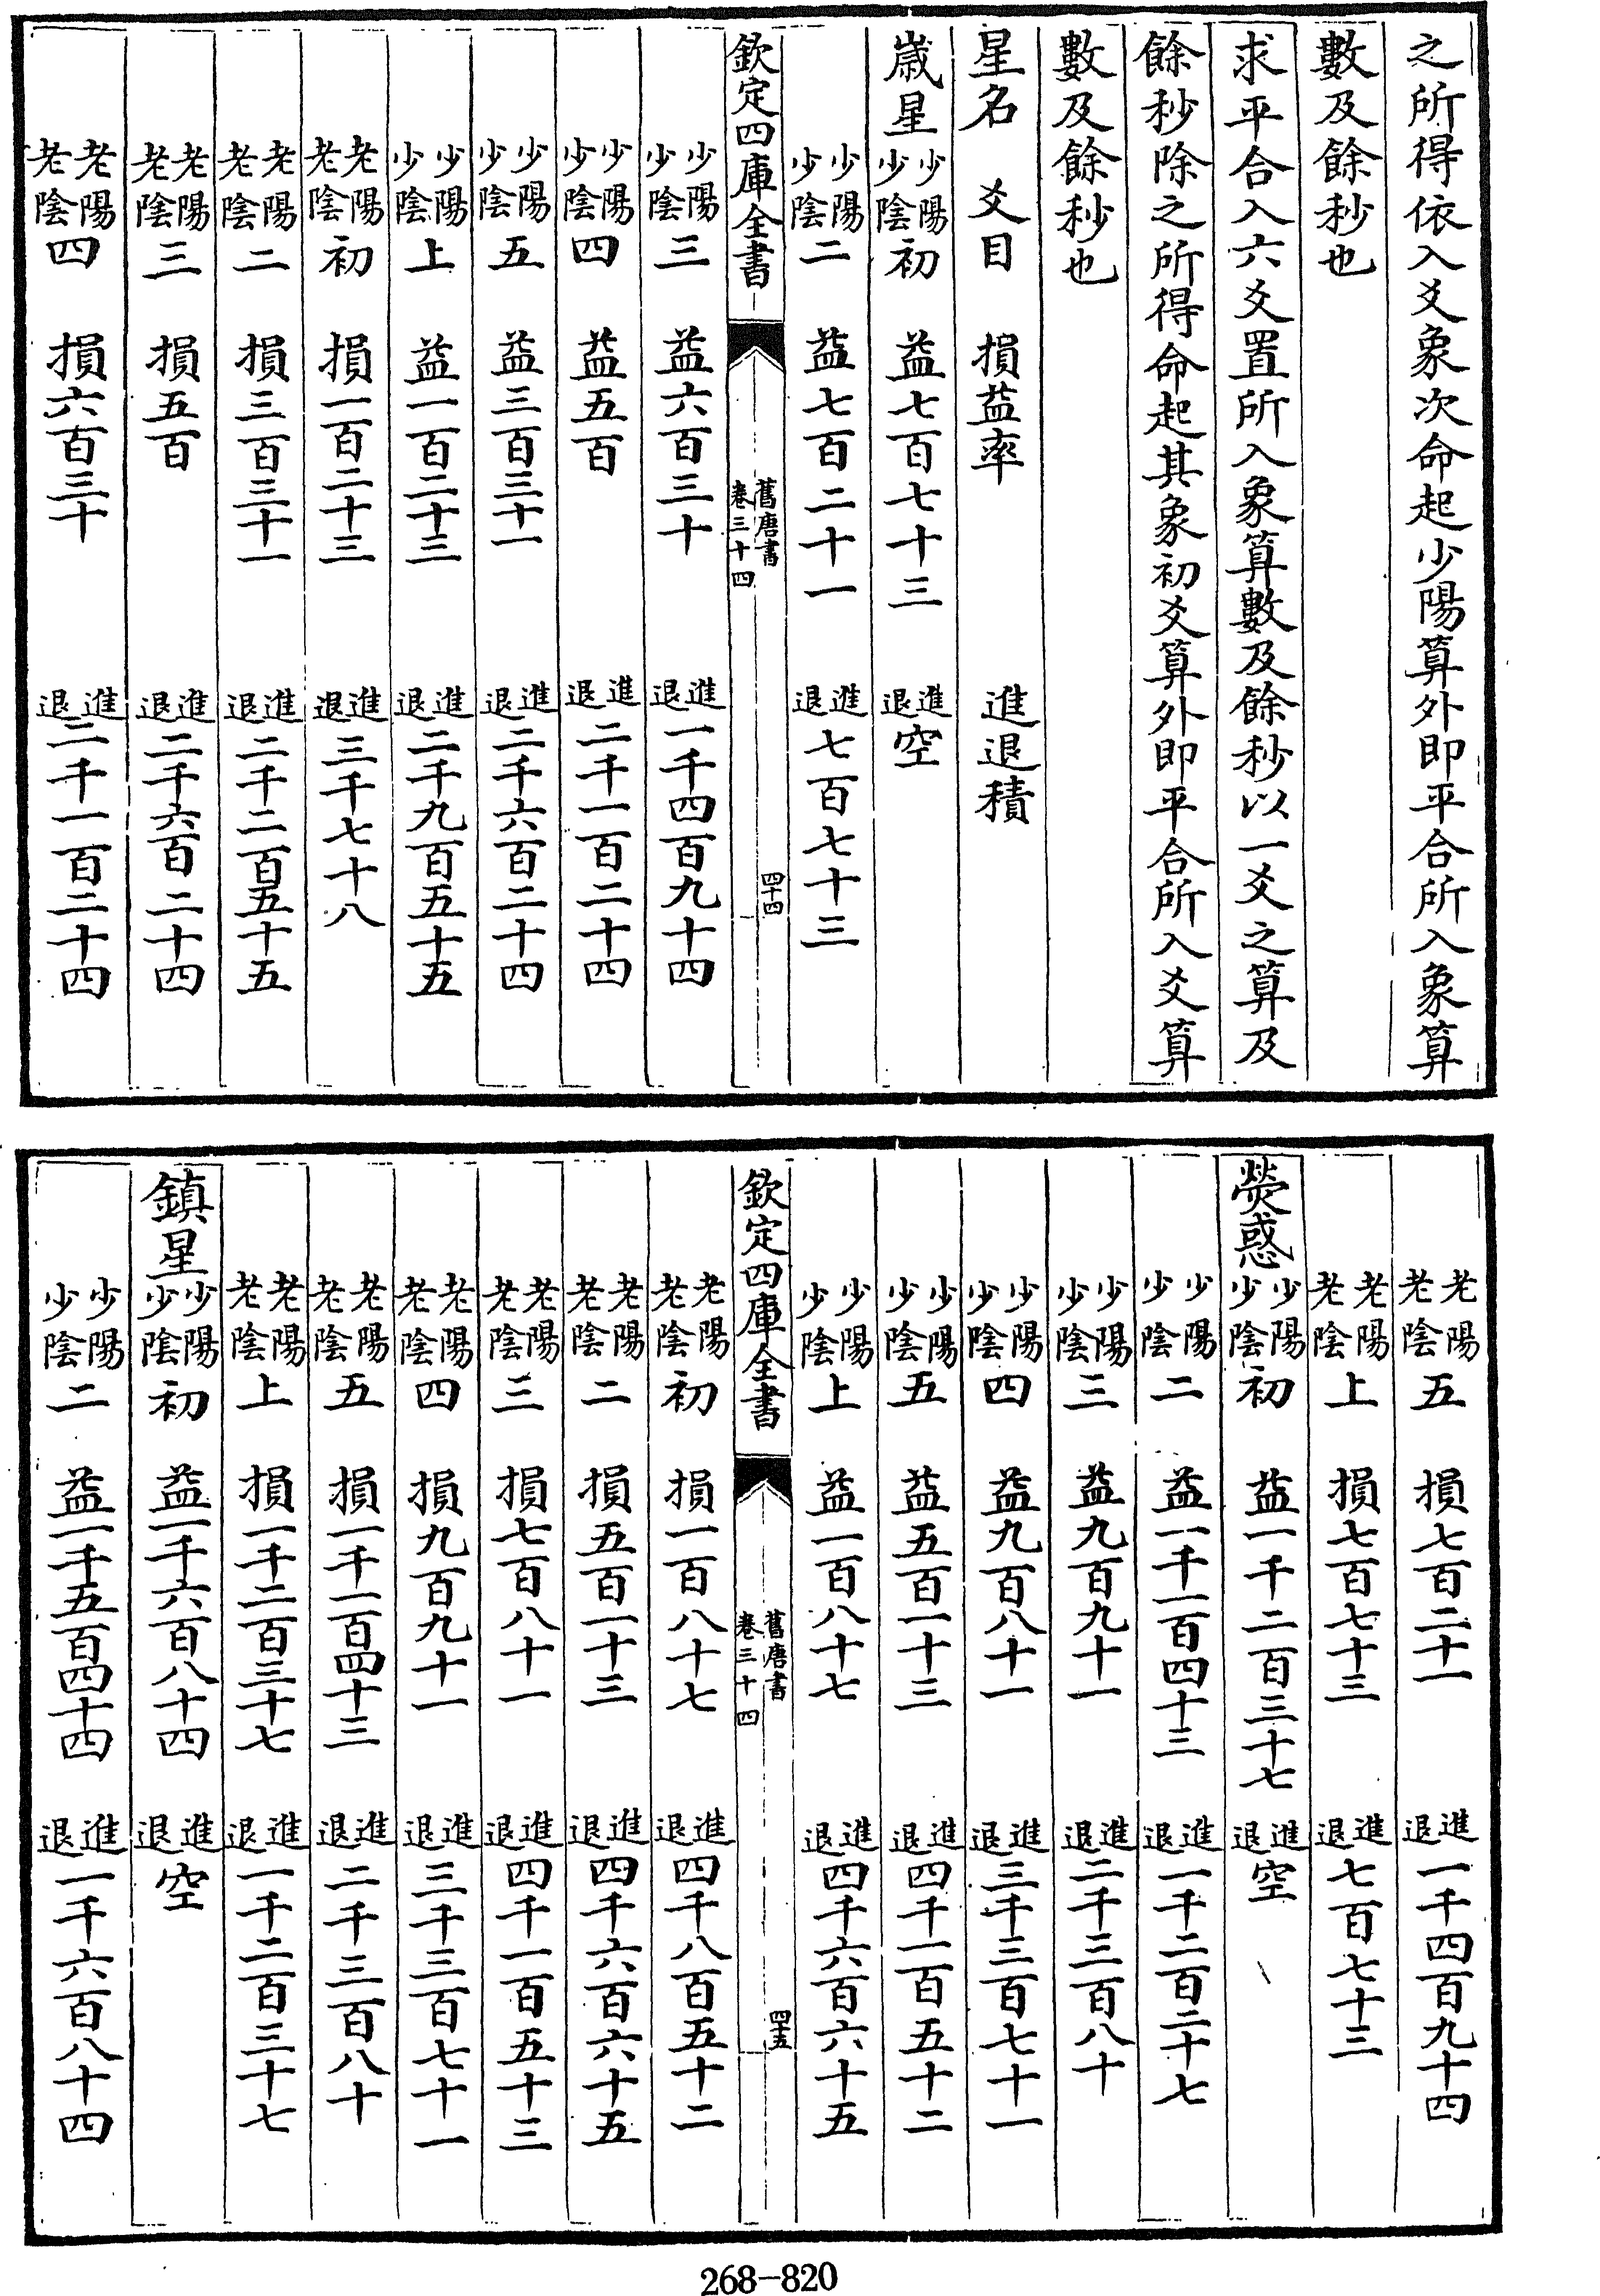 之所得依入爻象次命起少陽算外即平合所入象算
數及餘秒也
求平合入六爻置所入象算數及餘秒以一爻之算及
餘秒除之所得命起其象初爻算外即平合所入爻算
數及餘秒也
星名 爻目 損益率 進退積
歲星少陽少陰初 益七百七十三 進退空
少陽少陰二 益七百二十一 進退七百七十三
欽定四庫全書 舊唐書卷三十四 四十四
少陽少陰三 益六百三十 進退一千四百九十四
少陽少陰四 益五百 進退二千一百二十四
少陽少陰五 益三百三十一 進退二千六百二十四
少陽少陰上 益一百二十三 進退二千九百五十五
老陽老陰初 損一百二十三 進退三千七十八
老陽老陰二 損三百三十一 進退二千二百五十五
老陽老陰三 損五百 進退二千六百二十四
老陽老陰四 損六百三十 進退二千一百二十四
老陽老陰五 損七百二十一 進退一千四百九十四
老陽老陰上 損七百七十三 進退七百七十三
熒惑少陽少陰初 益一千二百三十七 進退空
少陽少陰二 益一千一百四十三 進退一千二百三十七
少陽少陰三 益九百九十一 進退二千三百八十
少陽少陰四 益九百八十一 進退三千三百七十一
少陽少陰五 益五百一十三 進退四千一百五十二
少陽少陰上 益一百八十七 進退四千六百六十五
欽定四庫全書 舊唐書卷三十四 四十五
老陽老陰初 損一百八十七 進退四千八百五十二
老陽老陰二 損五百一十三 進退四千六百六十五
老陽老陰三 損七百八十一 進退四千一百五十三
老陽老陰四 損九百九十一 進退三千三百七十一
老陽老陰五 損一千一百四十三 進退二千三百八十
老陽老陰上 損一千二百三十七 進退一千二百三十七
鎮星少陽少陰初 益一千六百八十四 進退空
少陽少陰二 益一千五百四十四 進退一千六百八十四
268-820